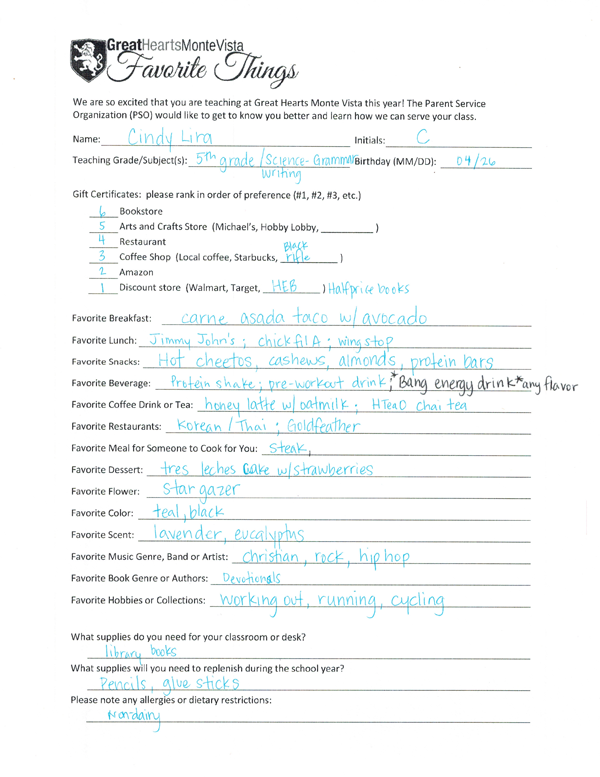 GreatHeartsMonteVista
Favorite Things
We are so excited that you are teaching at Great Hearts Monte Vista this year! The Parent Service
Organization (PSO) would like to get to know you better and learn how we can serve your class.
Name: Cindy Lira Initials: C
Teaching Grade/Subject(s): 5th grade / Science - Grammar Birthday (MM/DD): 04/26
writing
Gift Certificates: please rank in order of preference (#1, #2, #3, etc.)
6 Bookstore
5 Arts and Crafts Store (Michael's, Hobby Lobby, __________ )
4 Restaurant
Black
3 Coffee Shop (Local coffee, Starbucks, rifle )
2 Amazon
1 Discount store (Walmart, Target, HEB ) Halfprice books
Favorite Breakfast: carne asada taco w/ avocado
Favorite Lunch: Jimmy John's ; chickfilA ; wingstop
Favorite Snacks: Hot cheetos, cashews, almonds, protein bars
Favorite Beverage: Protein shake; pre-workout drink; *Bang energy drink* any flavor
Favorite Coffee Drink or Tea: honey latte w/ oatmilk ; HTeaO chai tea
Favorite Restaurants: Korean / Thai ; Goldfeather
Favorite Meal for Someone to Cook for You: steak,
Favorite Dessert: tres leches cake w/ strawberries
Favorite Flower: star gazer
Favorite Color: teal, black
Favorite Scent: lavender, eucalyptus
Favorite Music Genre, Band or Artist: christian, rock, hip hop
Favorite Book Genre or Authors: Devotionals
Favorite Hobbies or Collections: working out, running, cycling
What supplies do you need for your classroom or desk?
library books
What supplies will you need to replenish during the school year?
Pencils, glue sticks
Please note any allergies or dietary restrictions:
Non-dairy